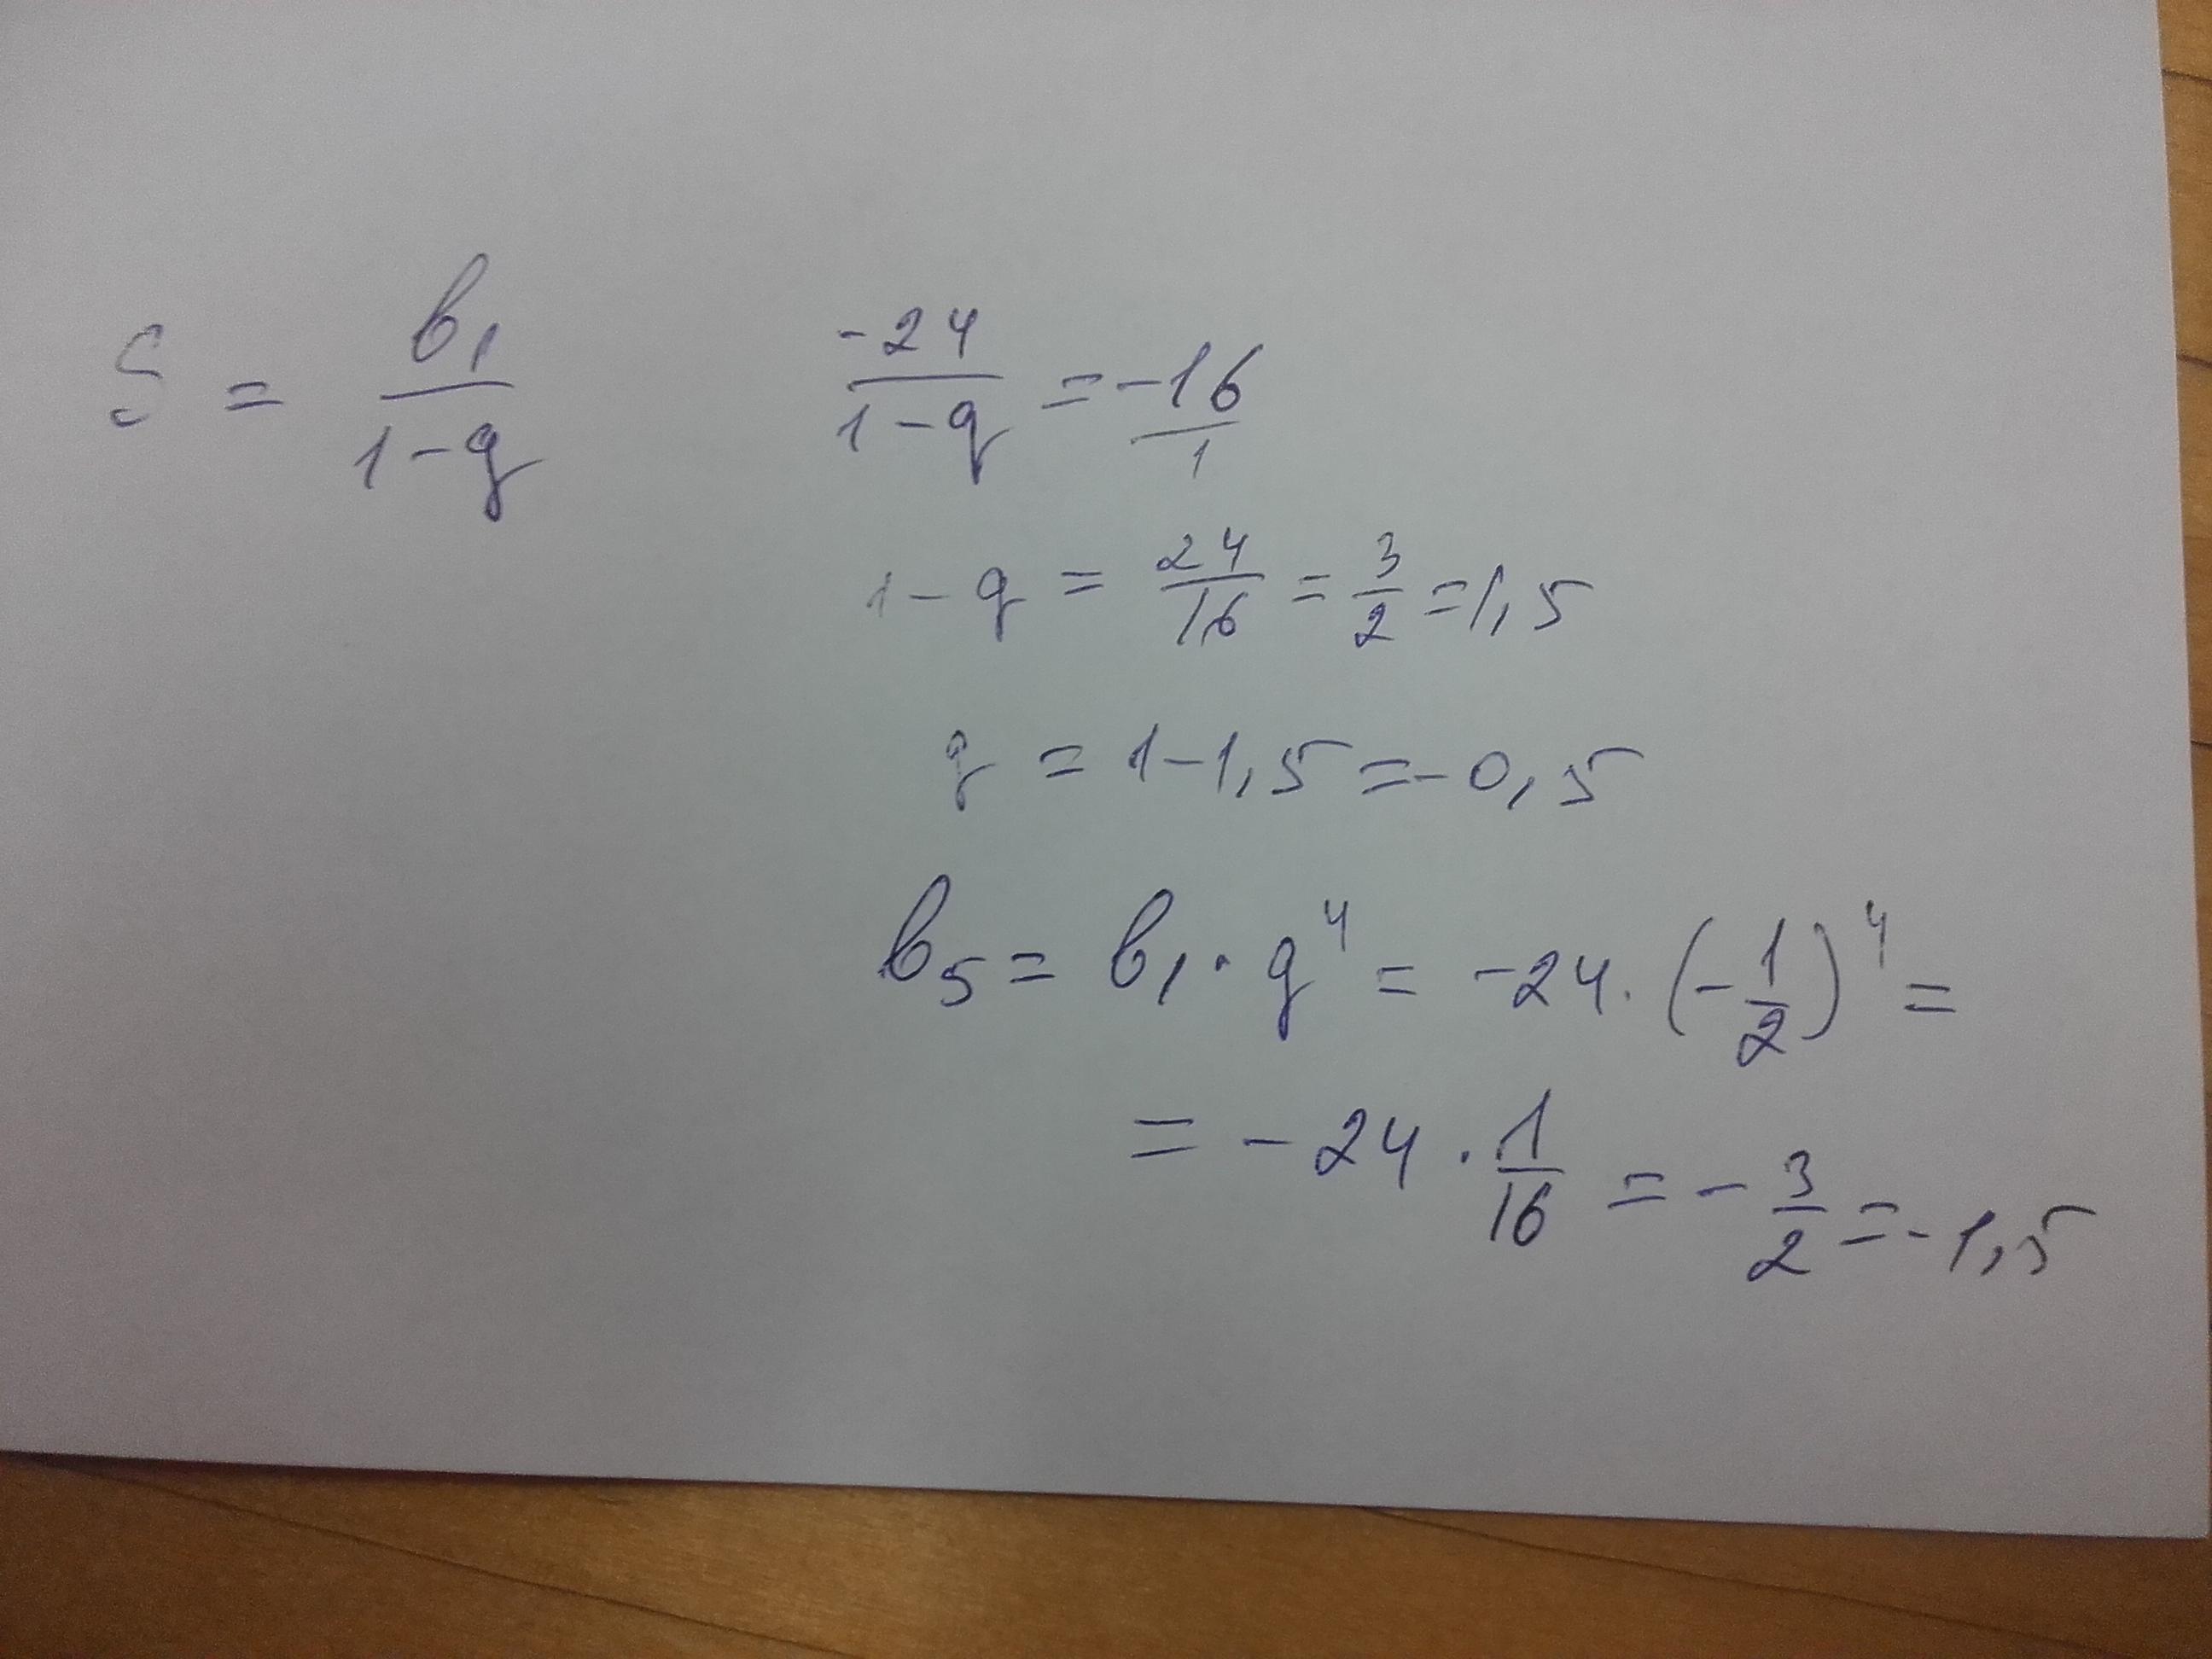 S = b₁/(1-q)
-24/(1-q) = -16/1
1-q = 24/16 = 3/2 = 1,5
q = 1-1,5 = -0,5
b₅ = b₁·q⁴ = -24·(-1/2)⁴ =
= -24·1/16 = -3/2 = -1,5